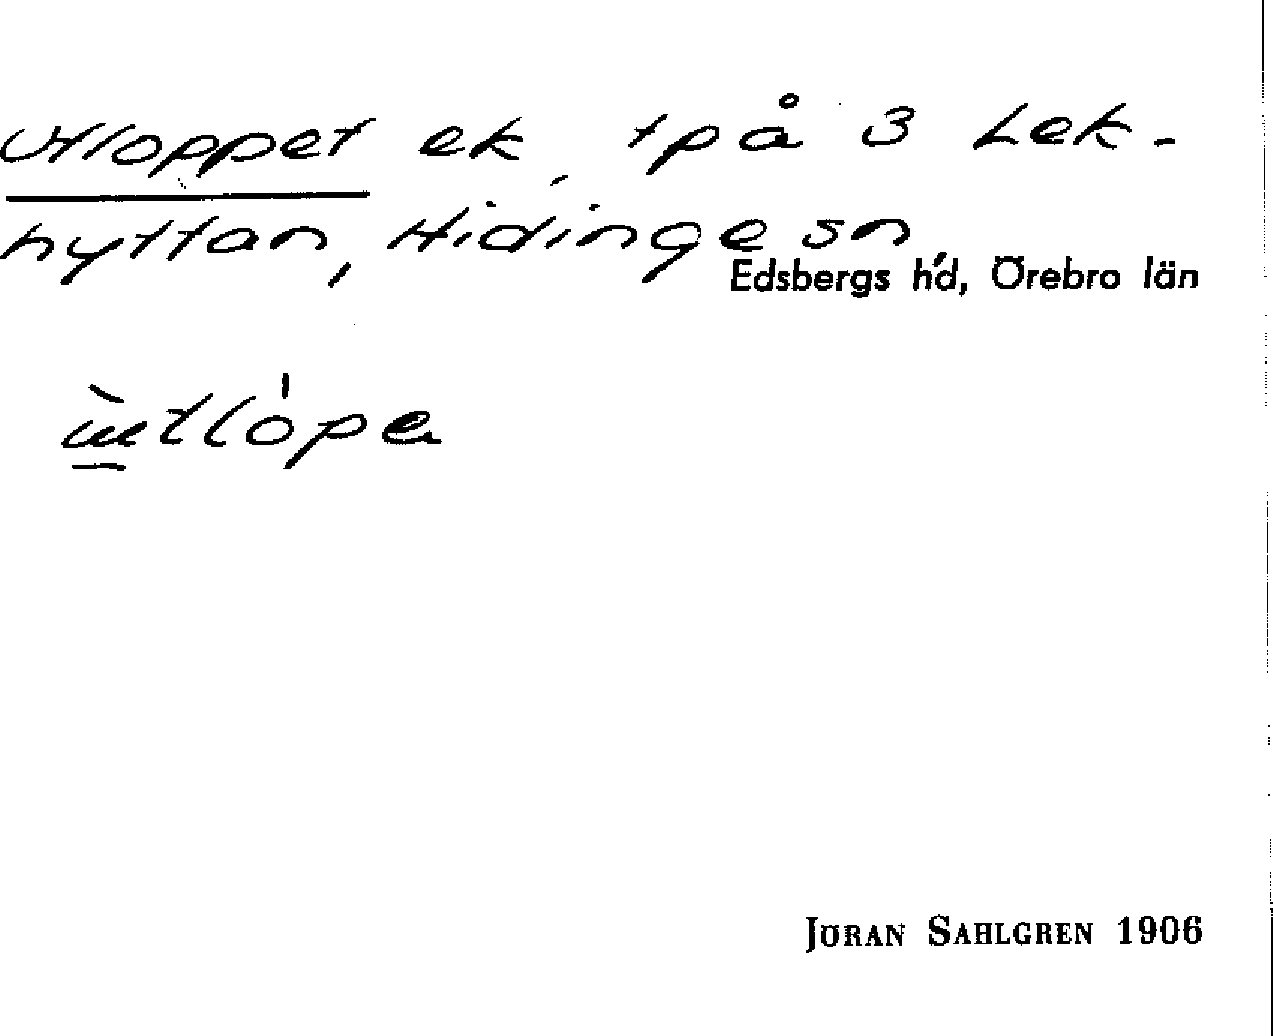 Utloppet ek, tpå 3 Lek-
hyttan, Hidinge sn
Edsbergs hd, Örebro län
JÖRAN SAHLGREN 1906